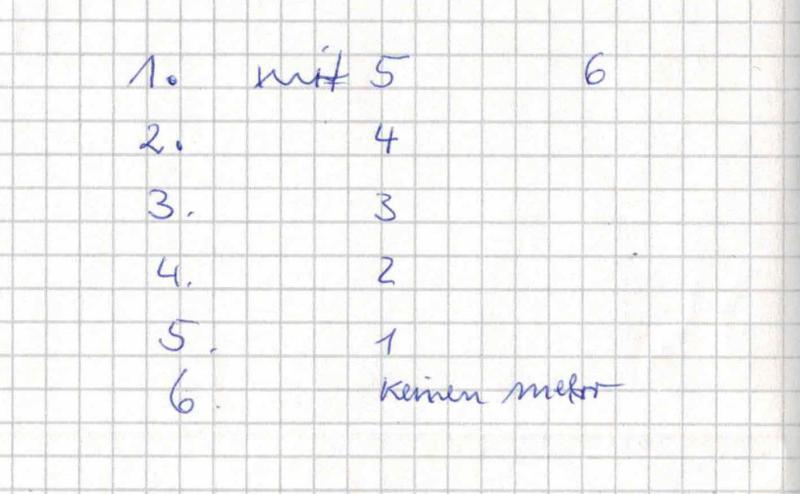 1. mit 5 6
2. 4
3. 3
4. 2
5. 1
6. keinen mehr